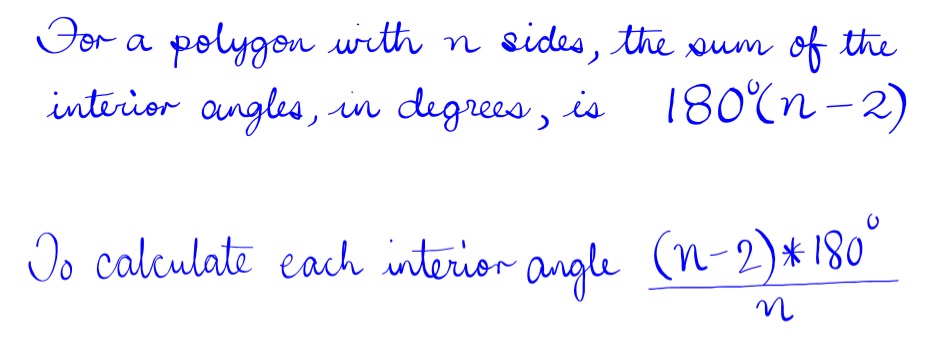 For a polygon with n sides, the sum of the
interior angles, in degrees, is 180°(n-2)
To calculate each interior angle (n-2)*180°
n